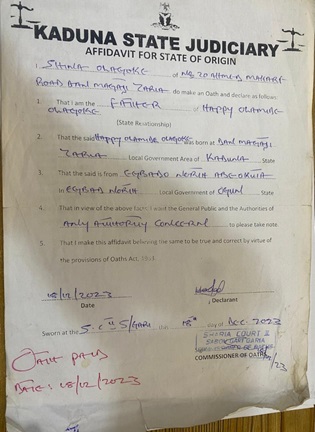 KADUNA STATE JUDICIARY
AFFIDAVIT FOR STATE OF ORIGIN
I, SHINA OLAGOKE of NO 20 AHMED MAKARFI
ROAD DAN MAGAJI ZARIA do make an Oath and declare as follows:
1. That I am the FATHER of HAPPY OLAMIDE
OLAGOKE
(State Relationship)
2. That the said HAPPY OLAMIDE OLAGOKE was born at DAN MAGAJI
ZARIA Local Government Area of KADUNA State
3. That the said is from EGBADO NORTH ABEOKUTA
in EGBADO NORTH Local Government of OGUN State
4. That in view of the above facts I want the General Public and the Authorities of
ANY AUTHORITY CONCERNED to please take note.
5. That I make this affidavit believing the same to be true and correct by virtue of
the provisions of Oaths Act,
18/12/2023
Date Declarant
Sworn at the S.C II S/GARI this 18th day of DEC. 2023
SHARIA COURT 2
SABON GARI ZARIA
COMMISSIONER OF OATHS
OATH PAID
DATE: 18/12/2023